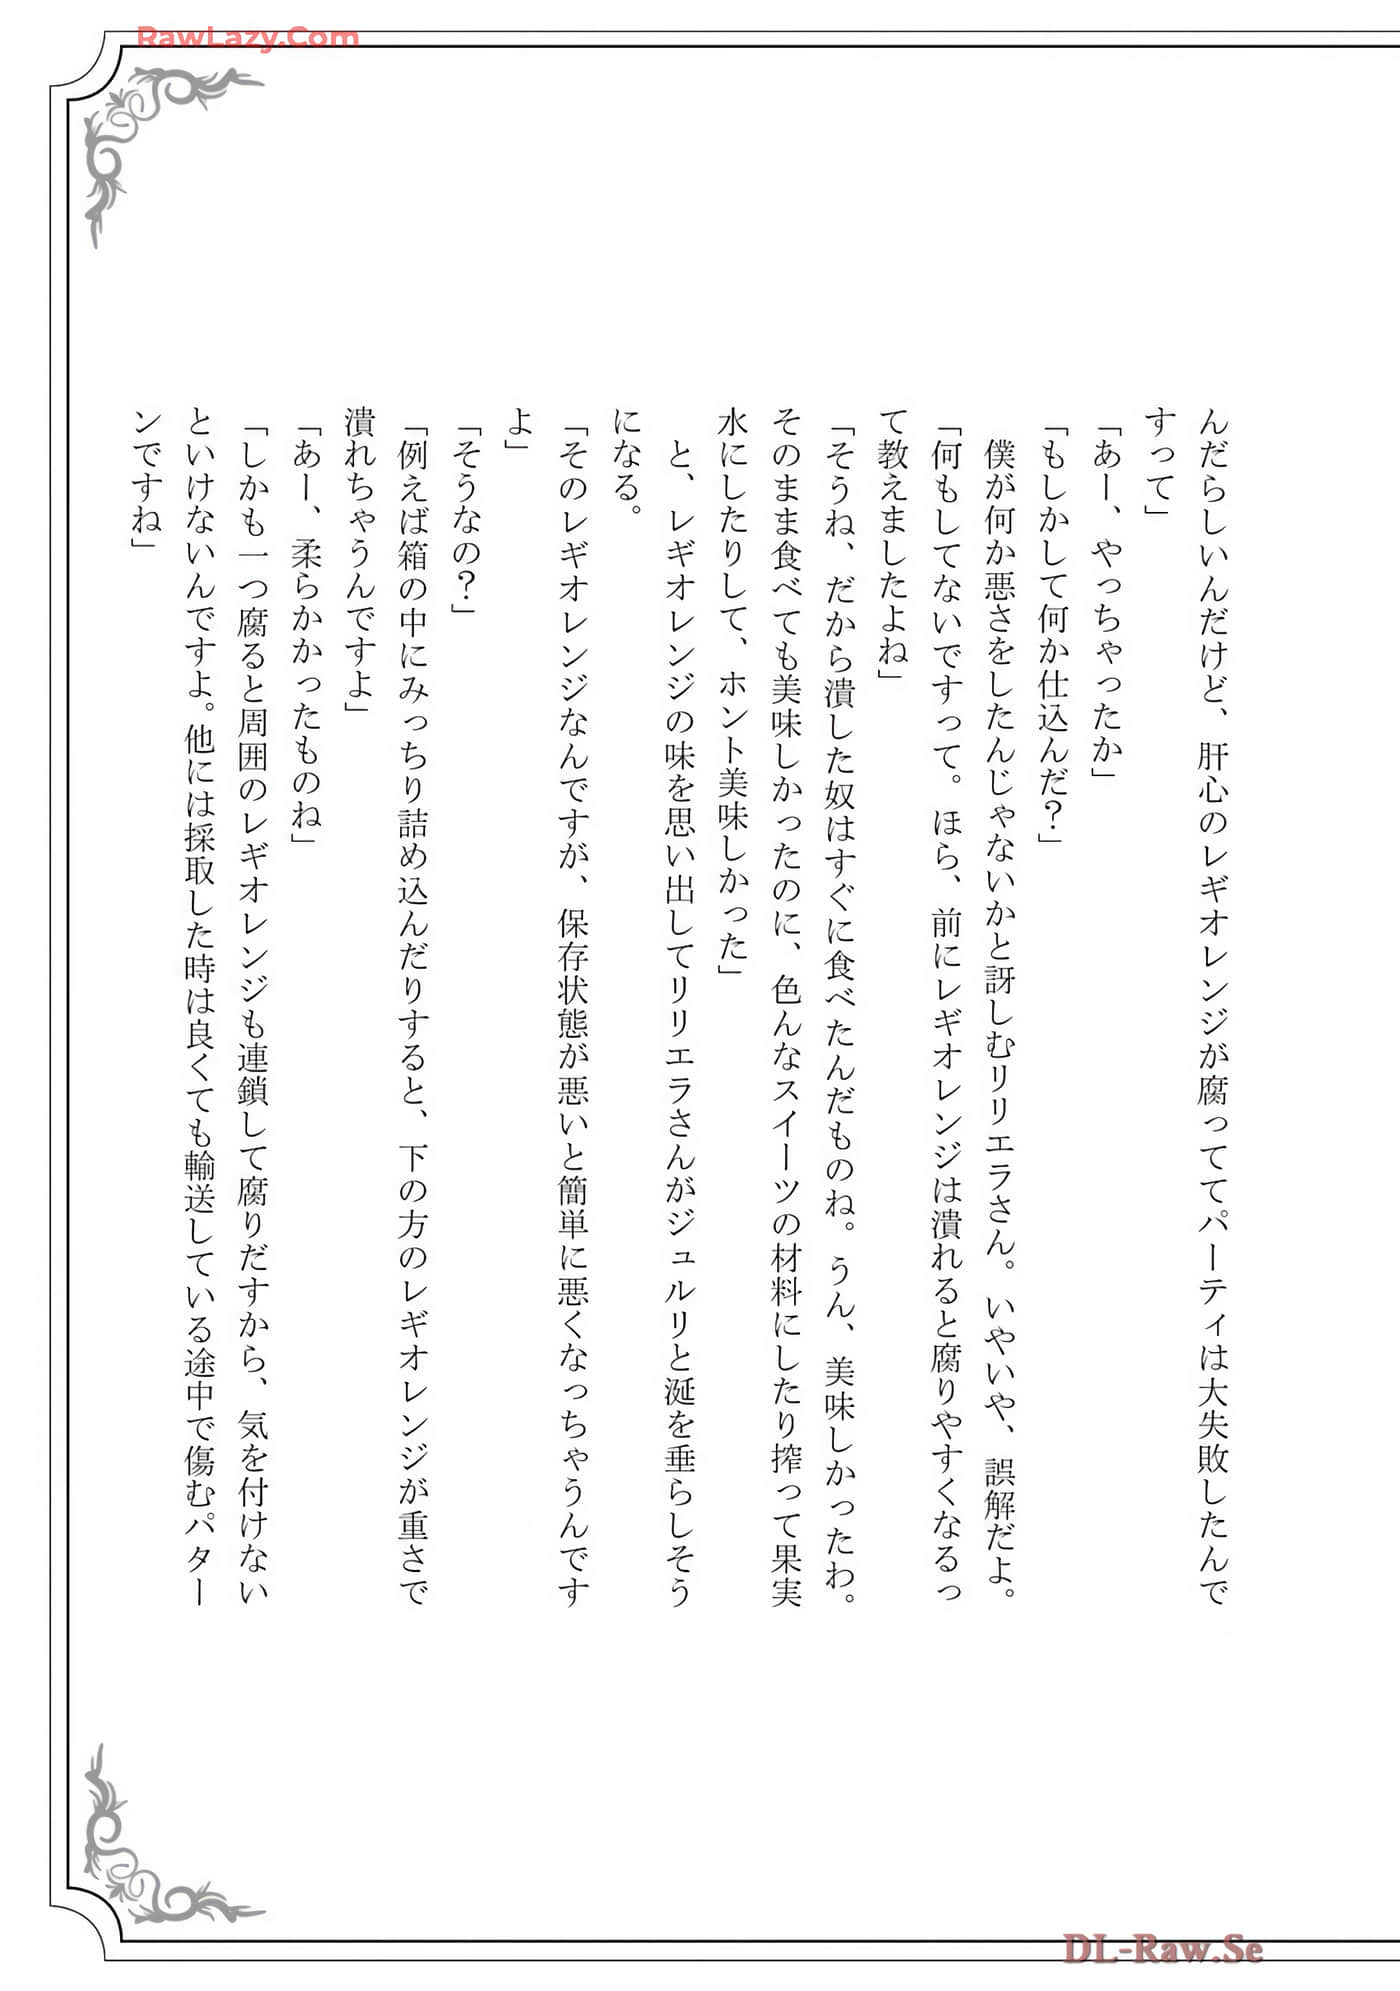 RawLazy.Com
んだらしいんだけど、肝心のレギオレンジが腐っててパーティは大失敗したんで
すって」
「あー、やっちゃったか」
「もしかして何か仕込んだ？」
　僕が何か悪さをしたんじゃないかと訝しむリリエラさん。いやいや、誤解だよ。
「何もしてないですって。ほら、前にレギオレンジは潰れると腐りやすくなるっ
て教えましたよね」
「そうね、だから潰した奴はすぐに食べたんだものね。うん、美味しかったわ。
そのまま食べても美味しかったのに、色んなスイーツの材料にしたり搾って果実
水にしたりして、ホント美味しかった」
　と、レギオレンジの味を思い出してリリエラさんがジュルリと涎を垂らしそう
になる。
「そのレギオレンジなんですが、保存状態が悪いと簡単に悪くなっちゃうんです
よ」
「そうなの？」
「例えば箱の中にみっちり詰め込んだりすると、下の方のレギオレンジが重さで
潰れちゃうんですよ」
「あー、柔らかかったものね」
「しかも一つ腐ると周囲のレギオレンジも連鎖して腐りだすから、気を付けない
といけないんですよ。他には採取した時は良くても輸送している途中で傷むパター
ンですね」
DL-Raw.Se